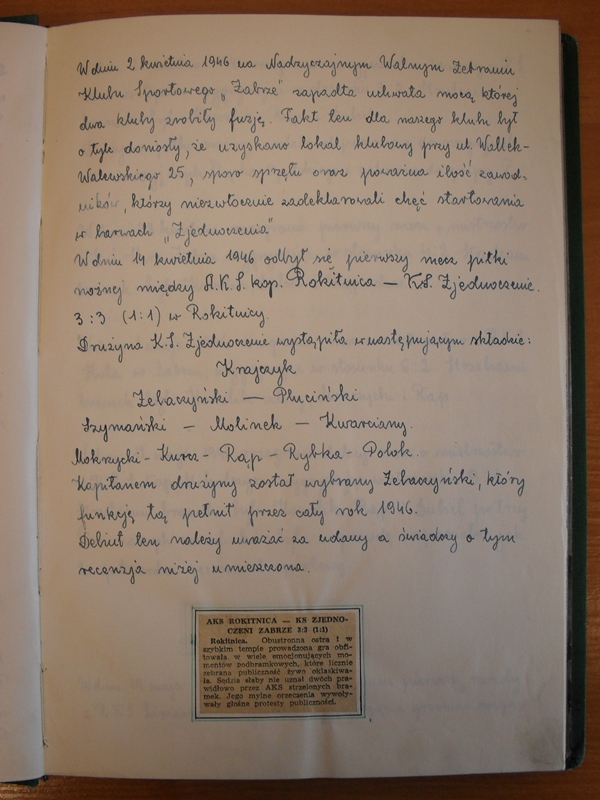 W dniu 2 kwietnia 1946 na Nadzyczajnym Walnym Zebraniu
Klubu Sportowego „Zabrze" zapadła uchwała mocą której
dwa kluby zrobiły fuzję. Fakt ten dla naszego klubu był
o tyle doniosły, że uzyskano lokal klubowy przy ul. Wallek-
Walewskiego 25, sporo sprzętu oraz poważna ilość zawod-
ników, którzy niezwłocznie zadeklarowali chęć startowania
w barwach „Zjednoczenia"
W dniu 14 kwietnia 1946 odbył się pierwszy mecz piłki
nożnej między A.K.S. kop. Rokitnica — K.S. Zjednoczenie.
3:3 (1:1) w Rokitnicy.
Drużyna K.S. Zjednoczenie wystąpiła w następującym składzie:
Krajczyk
Zebaczyński — Pluciński
Szymański — Molinek — Kwarciany.
Mokrzycki - Kurcz - Rąp - Rybka - Polok.
Kapitanem drużyny został wybrany Zebaczyński, który
funkcję tą pełnił przez cały rok 1946.
Debiut ten należy uważać za udany a świadczy o tym
recenzja niżej umieszczona.
AKS ROKITNICA — KS ZJEDNO-
CZENI ZABRZE 3:3 (1:1)
Rokitnica. Obustronna ostra i w
szybkim tempie prowadzona gra obfi-
towała w wiele emocjonujących mo-
mentów podbramkowych, które licznie
zebrana publiczność żywo oklaskiwa-
ła. Sędzia słaby nie uznał dwóch pra-
widłowo przez AKS strzelonych bra-
mek. Jego mylne orzeczenia wywoły-
wały głośne protesty publiczności.